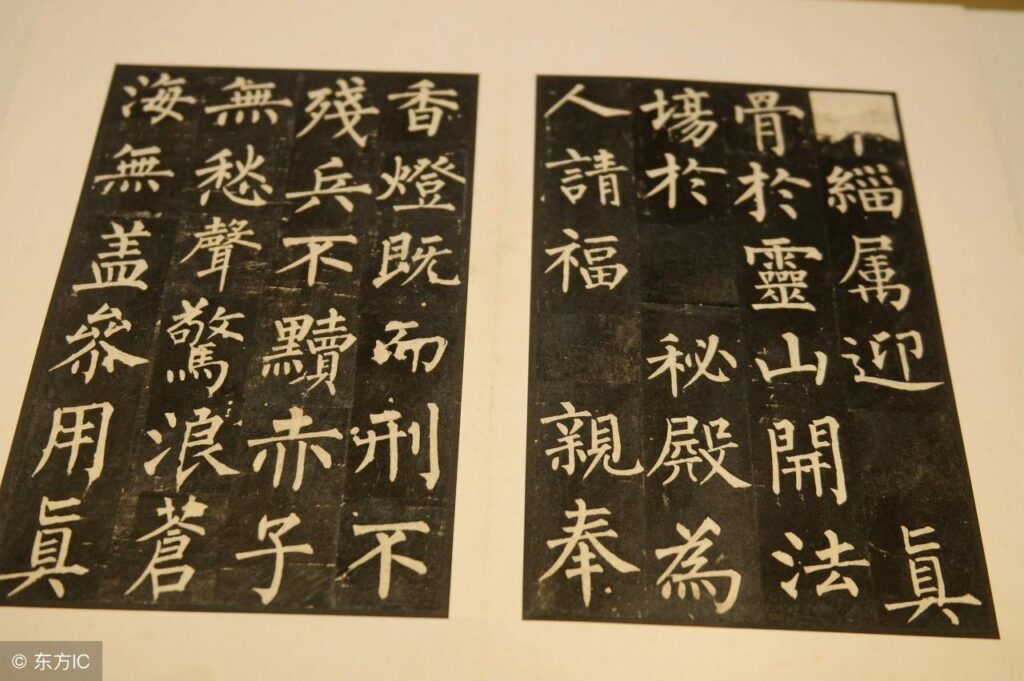 緇属迎 眞
骨於靈山開法
場於 秘殿為
人請福 親奉
香燈既而刑不
残兵不黷赤子
無愁聲驚浪蒼
海無盖叅用眞
© 东方IC